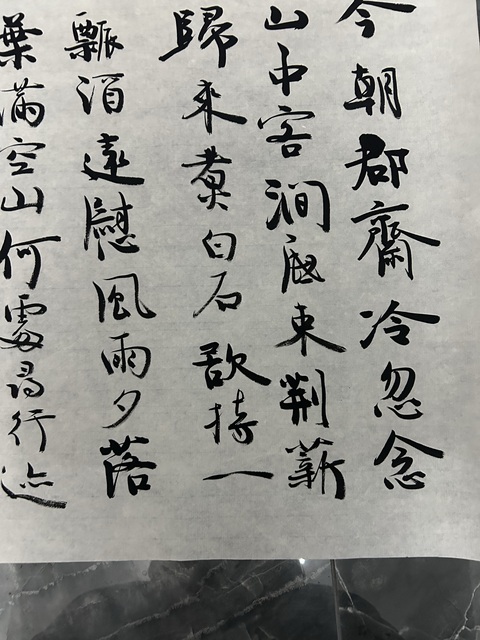 今朝郡齋冷忽念
山中客澗底束荊薪
歸來煑白石欲持一
瓢酒遠慰風雨夕落
葉滿空山何處尋行迹